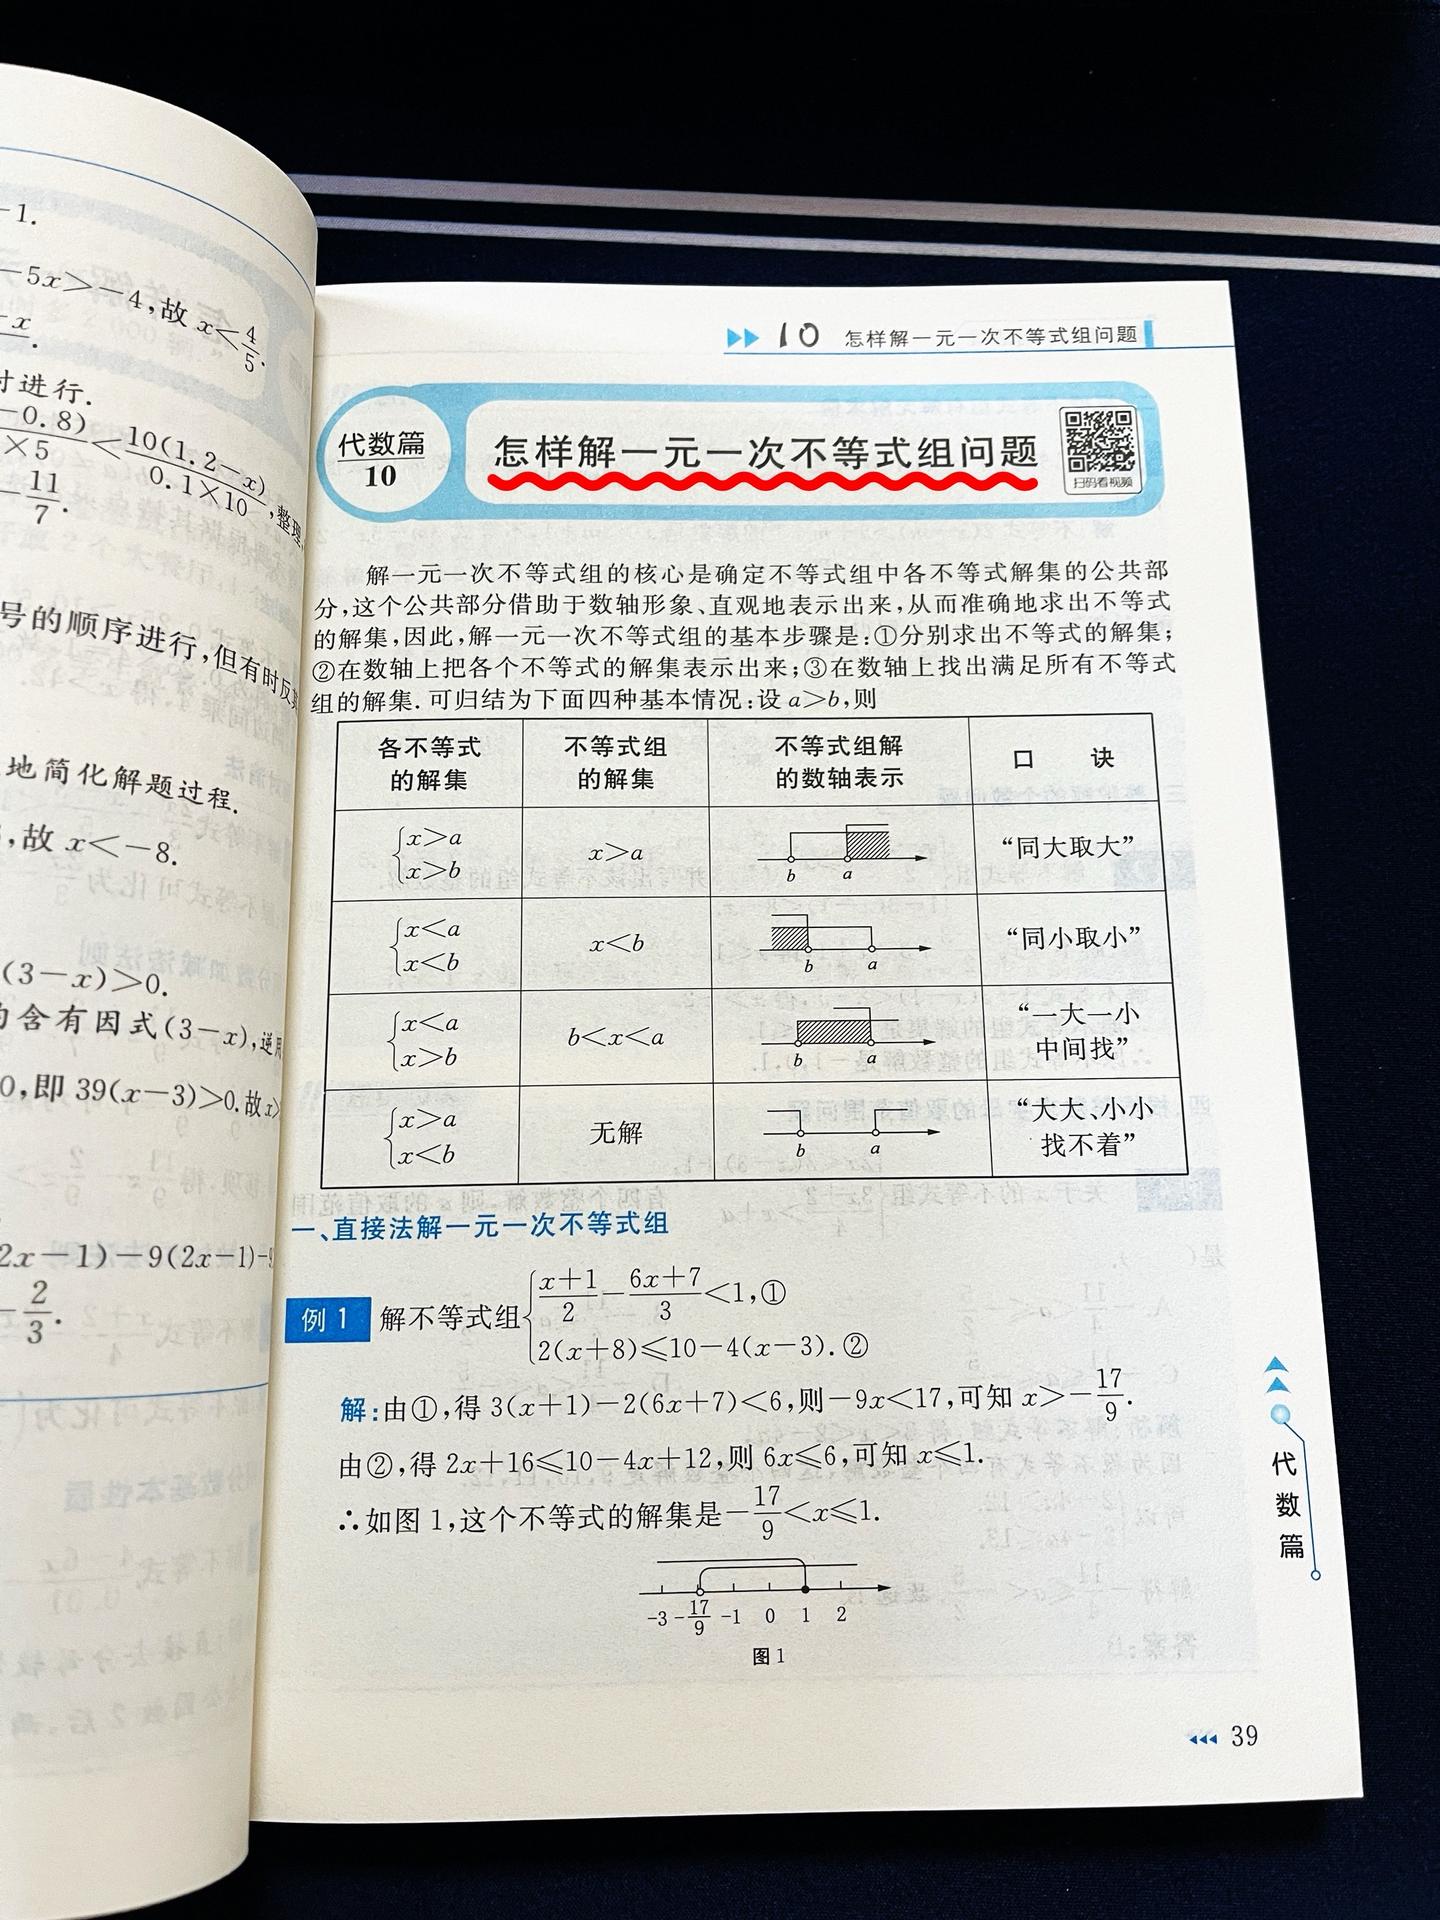 -1.
-5x>-4,故 x<4/5.
-x.
时进行.
-0.8)/×5<10(1.2-x)/0.1×10,整理,
-11/7.
号的顺序进行,但有时反
地简化解题过程.
,故 x<-8.
(3-x)>0.
含有因式(3-x),逆用
0,即 39(x-3)>0.故x>
2x-1)-9(2x-1)-9
-2/3.
10 怎样解一元一次不等式组问题
代数篇
10
怎样解一元一次不等式组问题
扫码看视频
解一元一次不等式组的核心是确定不等式组中各不等式解集的公共部
分,这个公共部分借助于数轴形象、直观地表示出来,从而准确地求出不等式
的解集,因此,解一元一次不等式组的基本步骤是:①分别求出不等式的解集;
②在数轴上把各个不等式的解集表示出来;③在数轴上找出满足所有不等式
组的解集.可归结为下面四种基本情况:设 a>b,则
各不等式的解集 不等式组的解集 不等式组解的数轴表示 口诀
{x>a x>b x>a b a “同大取大”
{x<a x<b x<b b a “同小取小”
{x<a x>b b<x<a b a “一大一小中间找”
{x>a x<b 无解 b a “大大、小小找不着”
一、直接法解一元一次不等式组
例1 解不等式组{(x+1)/2-(6x+7)/3<1,①
2(x+8)≤10-4(x-3).②
解:由①,得 3(x+1)-2(6x+7)<6,则-9x<17,可知 x>-17/9.
由②,得 2x+16≤10-4x+12,则 6x≤6,可知 x≤1.
∴如图 1,这个不等式的解集是-17/9<x≤1.
-3 -17/9 -1 0 1 2
图 1
代数篇
39